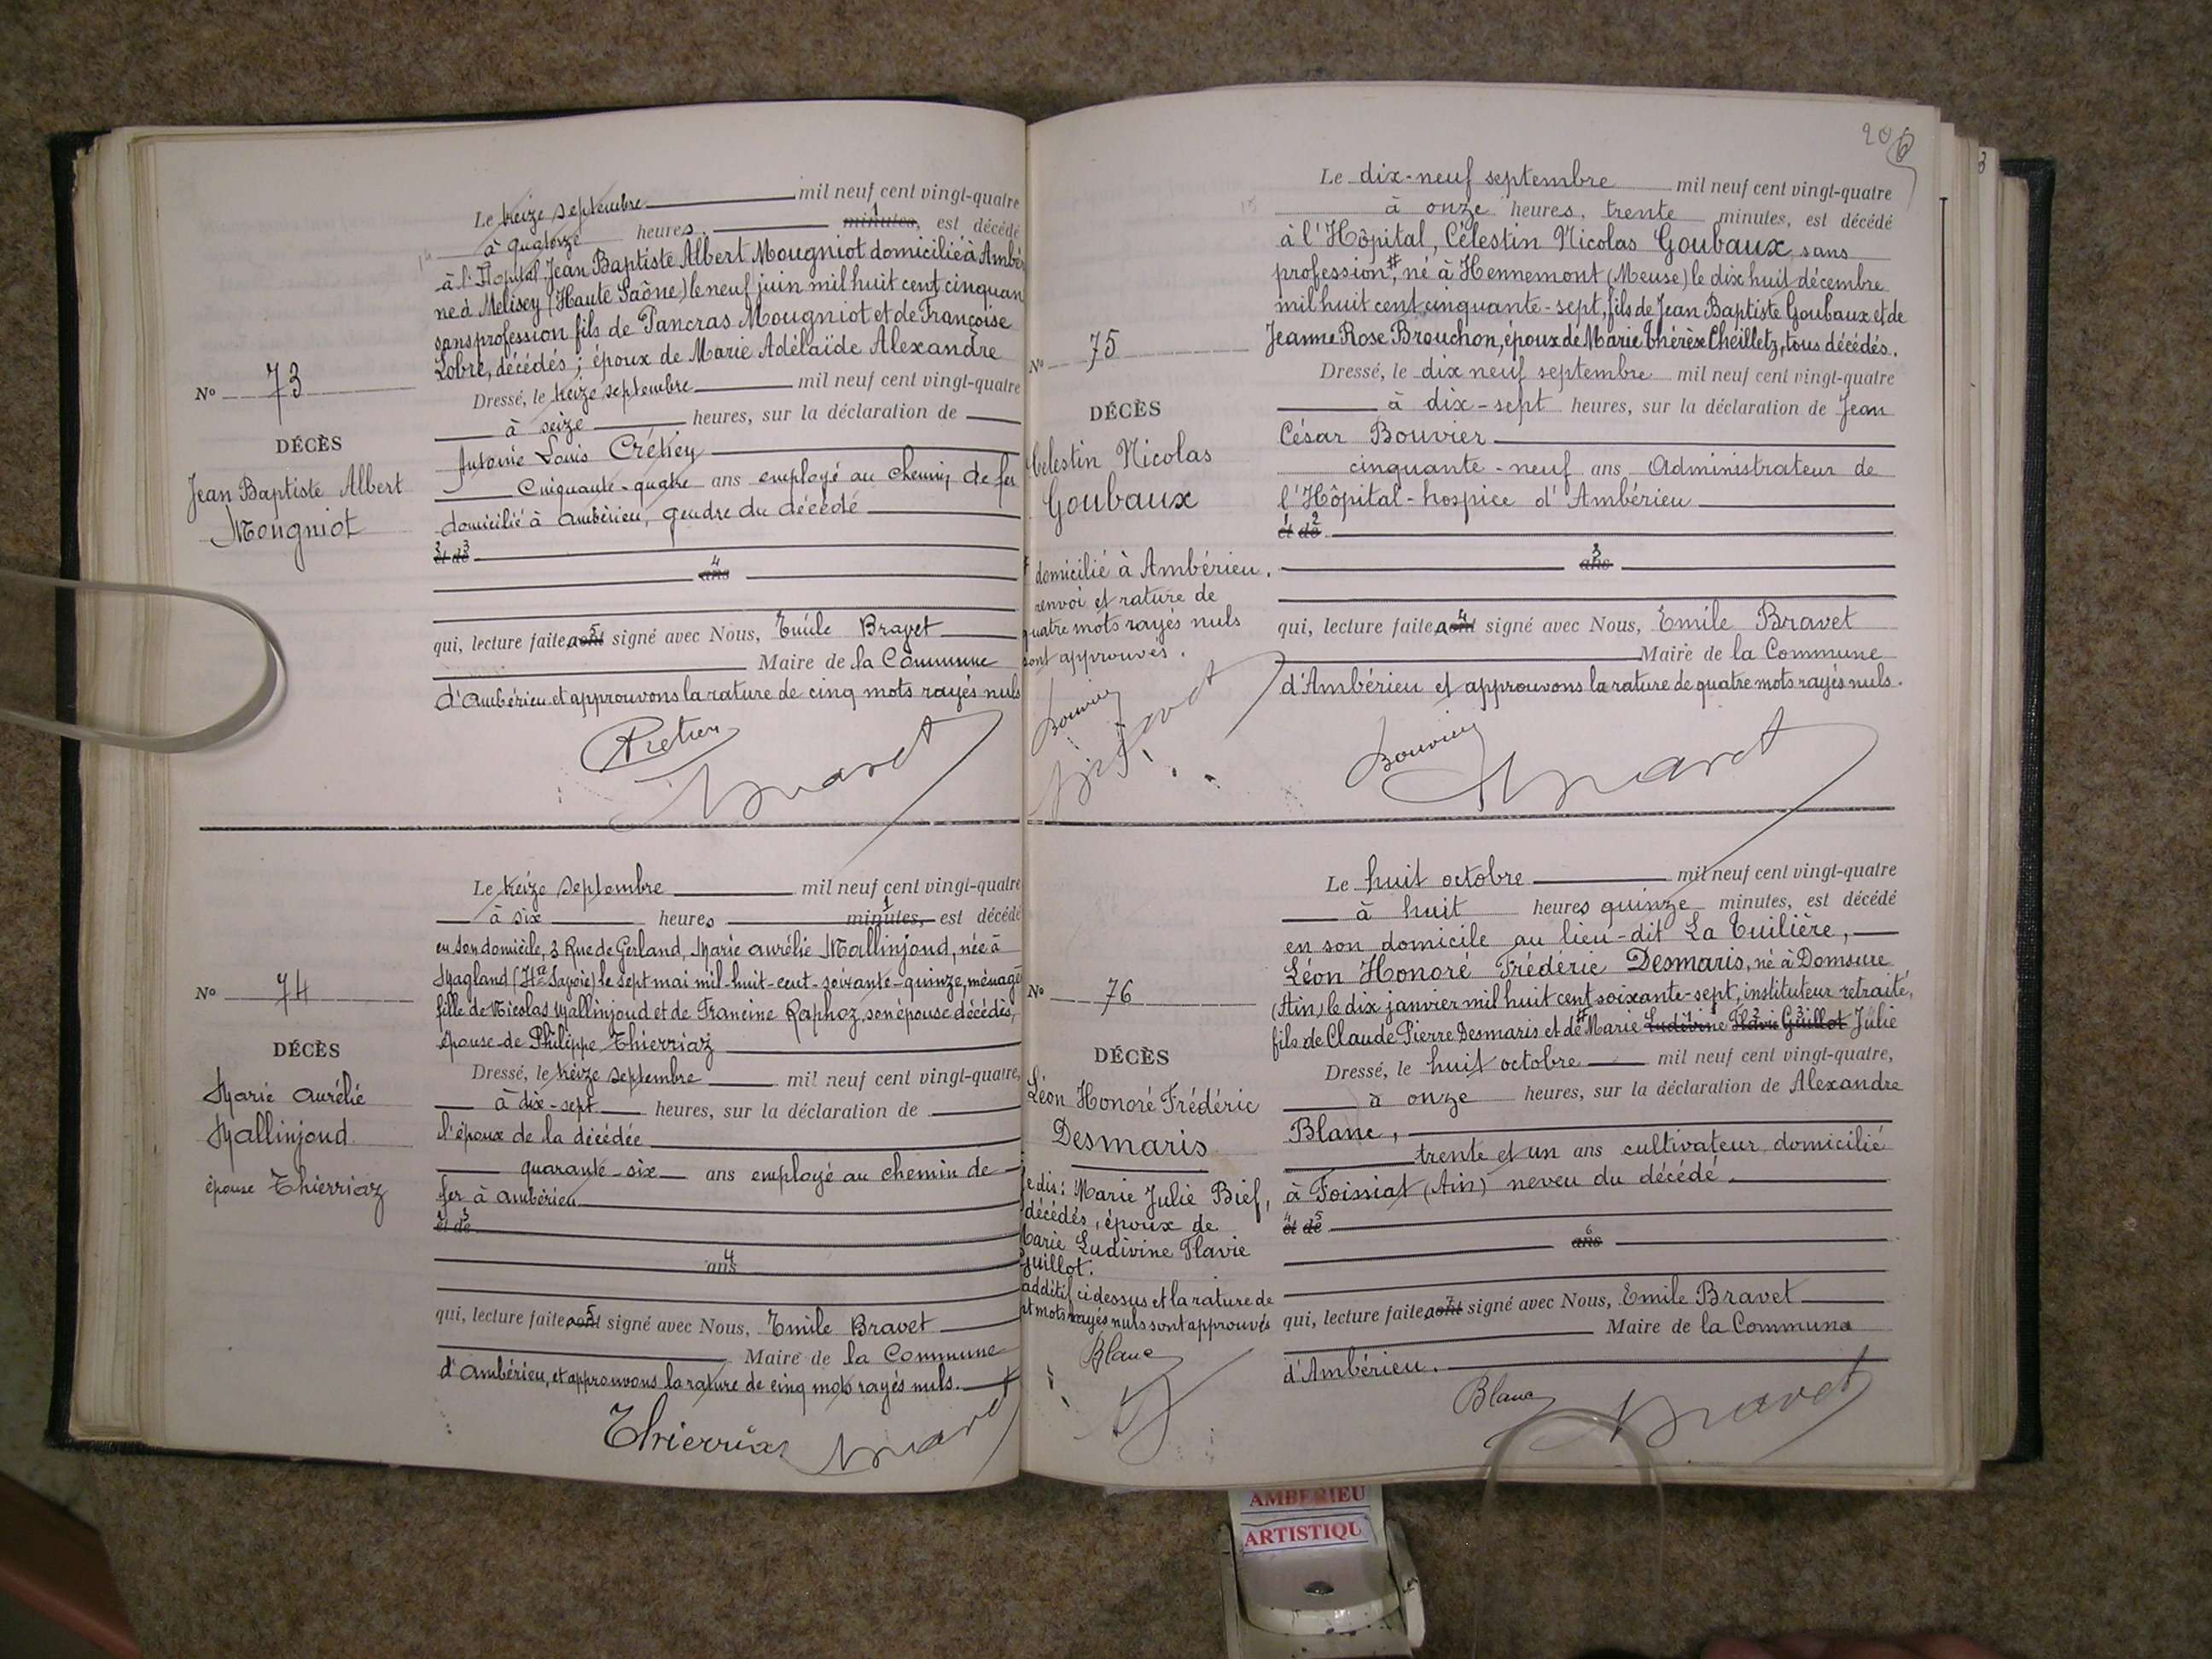 Le treize septembre mil neuf cent vingt-quatre
à quatorze heures, minutes, est décédé
à l'Hôpital Jean Baptiste Albert Mougniot domicilié à Ambé
né à Mélisey (Haute Saône) le neuf juin mil huit cent cinquan
sans profession fils de Pancras Mougniot et de Françoise
Lobre, décédés ; époux de Marie Adélaïde Alexandre
No 73
Dressé, le treize septembre mil neuf cent vingt-quatre
à seize heures, sur la déclaration de
DÉCÈS
Jean Baptiste Albert
Mougniot
Antoine Louis
Cinquante-quatre ans employé au chemin de fer
domicilié à Ambérieu, gendre du décédé
et de
ans
qui, lecture faite, a ont signé avec Nous, Emile Bravet
Maire de la Commune
d'Ambérieu et approuvons la rature de cinq mots rayés nuls
Bravet
Le treize septembre mil neuf cent vingt-quatre
à six heures minutes, est décédé
en son domicile, 3 Rue de Gerland, Marie Aurélie Mallinjoud, née à
Magland (Hte Savoie) le sept mai mil-huit-cent-soixante-quinze, ménagè
fille de Nicolas Mallinjoud et de Francine Raphoz, son épouse décédés,
épouse de Philippe Thierriaz
No 74
DÉCÈS
Marie Aurélie
Mallinjoud
épouse Thierriaz
Dressé, le treize septembre mil neuf cent vingt-quatre,
à dix-sept heures, sur la déclaration de
l'époux de la décédée
quarante-six ans employé au chemin de
fer à Ambérieu
et de
ans
qui, lecture faite, a ont signé avec Nous, Emile Bravet
Maire de la Commune
d'Ambérieu, et approuvons la rature de cinq mots rayés nuls.
Thierriaz Bravet
206
Le dix-neuf septembre mil neuf cent vingt-quatre
à onze heures, trente minutes, est décédé
à l'Hôpital, Célestin Nicolas Goubaux, sans
profession #, né à Hennemont (Meuse) le dix huit décembre
mil huit cent cinquante-sept, fils de Jean Baptiste Goubaux et de
Jeanne Rose Brouchon, époux de Marie Thérèse Cheilletz, tous décédés.
No 75
Dressé, le dix neuf septembre mil neuf cent vingt-quatre
à dix-sept heures, sur la déclaration de Jean
César Bouvier
cinquante-neuf ans Administrateur de
l'Hôpital-hospice d'Ambérieu
et de
ans
DÉCÈS
Célestin Nicolas
Goubaux
# domicilié à Ambérieu.
renvoi et rature de
quatre mots rayés nuls
sont approuvés.
Bouvier
Bravet
qui, lecture faite, a ont signé avec Nous, Emile Bravet
Maire de la Commune
d'Ambérieu et approuvons la rature de quatre mots rayés nuls.
Bouvier Bravet
Le huit octobre mil neuf cent vingt-quatre
à huit heures quinze minutes, est décédé
en son domicile au lieu-dit La Tuilière,
Léon Honoré Frédéric Desmaris, né à Domsure
(Ain) le dix janvier mil huit cent soixante-sept, instituteur retraité,
fils de Claude Pierre Desmaris et de # Marie Ludivine Flavie Guillot Julie
No 76
DÉCÈS
Léon Honoré Frédéric
Desmaris
Je dis : Marie Julie Bief,
décédés, époux de
Marie Ludivine Flavie
Guillot.
additif ci dessus et la rature de
pt mots rayés nuls sont approuvés
Blanc
Dressé, le huit octobre mil neuf cent vingt-quatre,
à onze heures, sur la déclaration de Alexandre
Blanc,
trente et un ans cultivateur, domicilié
à Foissiat (Ain) neveu du décédé
et de
ans
qui, lecture faite, a ont signé avec Nous, Emile Bravet
Maire de la Commune
d'Ambérieu.
Blanc Bravet
AMBERIEU
ARTISTIQU